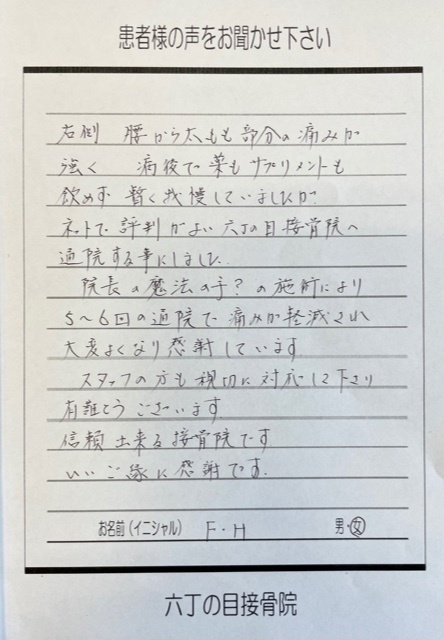 患者様の声をお聞かせ下さい
右側 腰から太もも部分の痛みが
強く 病後で薬もサプリメントも
飲めず 暫く我慢していましたが
ネットで評判がよい六丁の目接骨院へ
通院する事にしました.
院長の魔法の手?の施術により
5〜6回の通院で痛みが軽減され
大変よくなり感謝しています
スタッフの方も親切に対応して下さり
有難とうございます
信頼出来る接骨院です
いいご縁に感謝です.
お名前(イニシャル) F・H 男・女
六丁の目接骨院